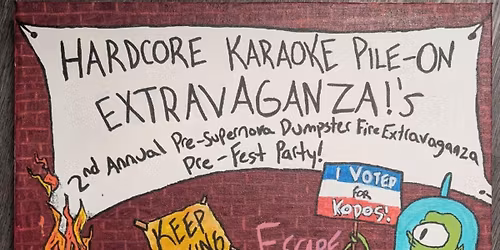 HARDCORE KARAOKE PILE-ON
EXTRAVAGANZA!'s
2nd Annual Pre-Supernova Dumpster Fire Extravaganza
Pre-Fest Party!
I VOTED
FOR
KODOS!
KEEP